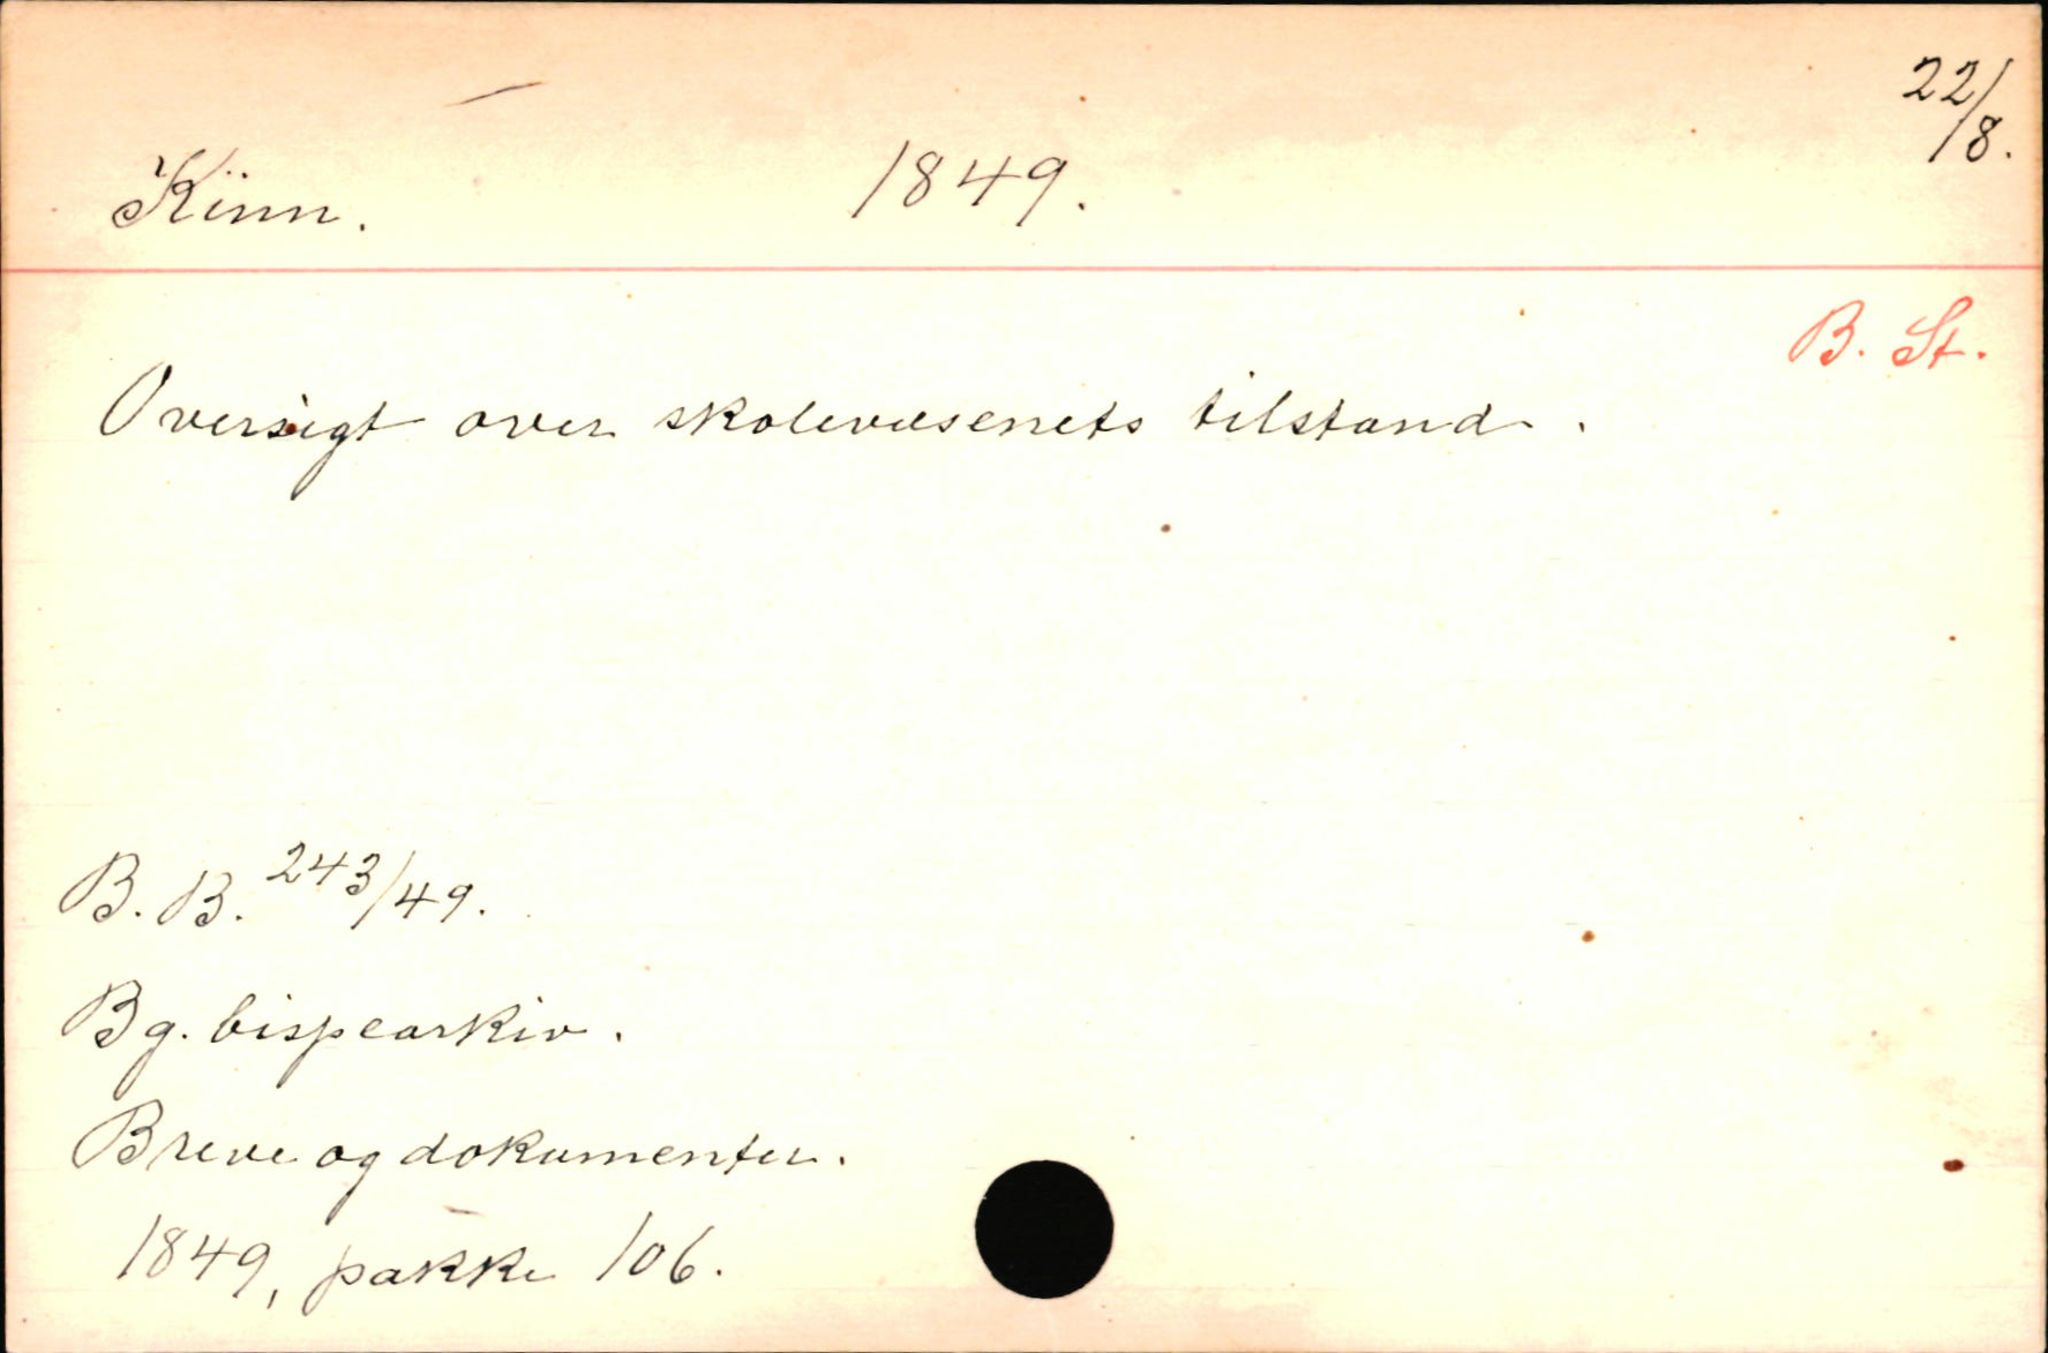 22/8.
Kinn. 1849.
B. St.
Oversigt over skolevæsenets tilstand.
B. B. 243/49.
Bg. bispearkiv.
Breve og dokumenter.
1849, pakke 106.